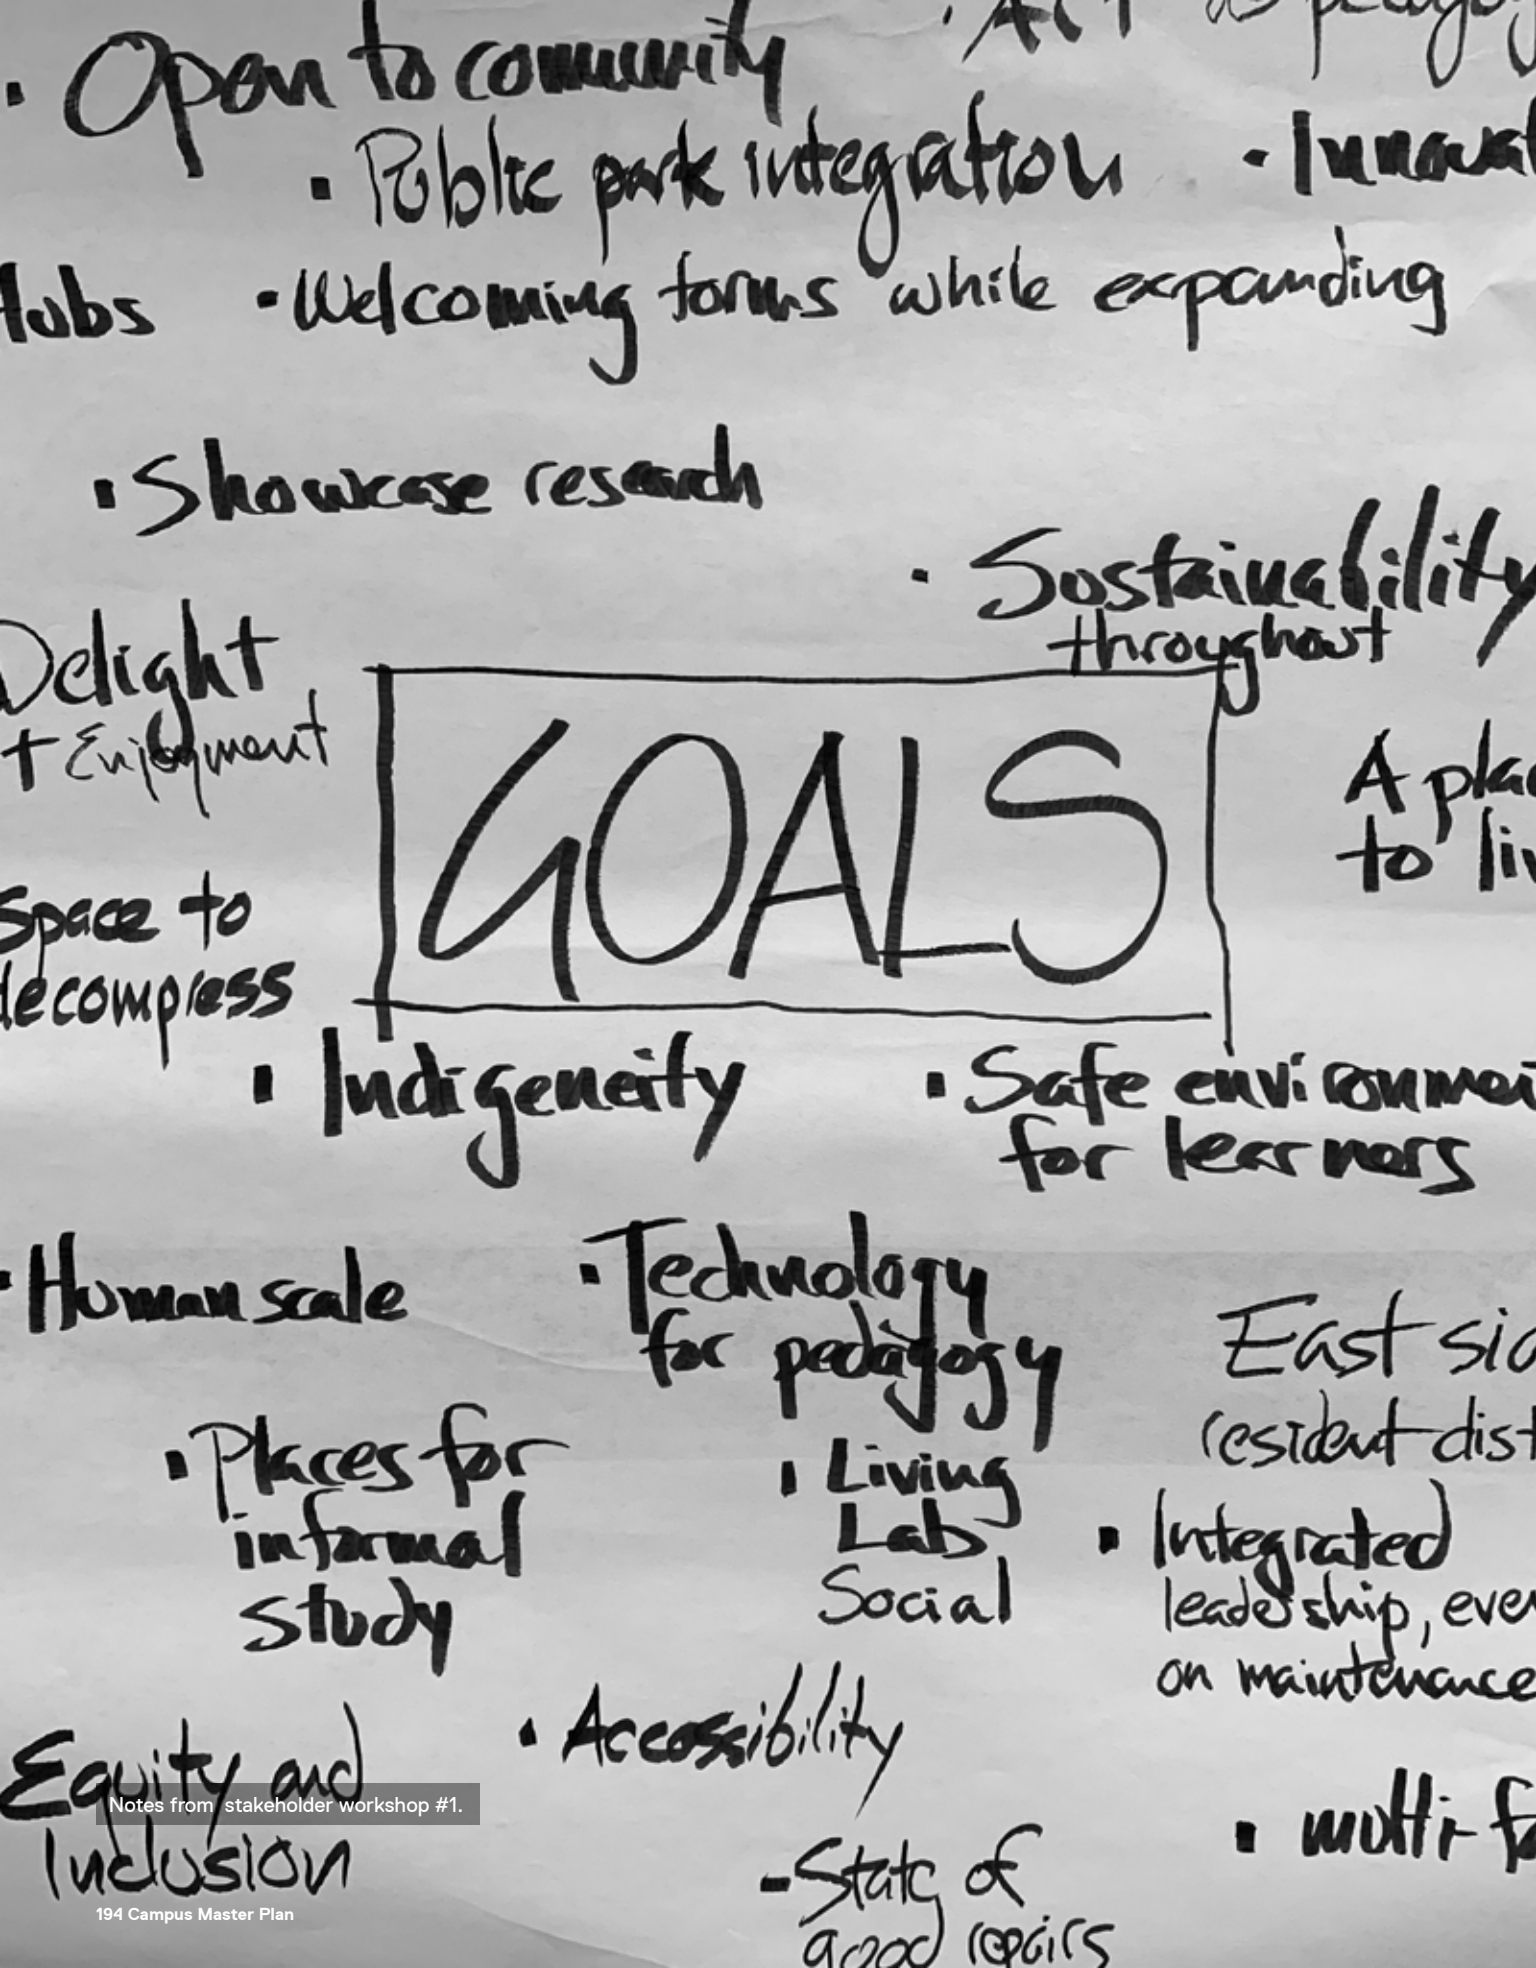 Art as pedagogy
· Open to community
· Public park integration
· Innovat
Hubs
· Welcoming forms while expanding
· Showcase research
· Sustainability
throughout
Delight
+ Enjoyment
GOALS
A plac
to liv
space to
decompress
· Indigeneity
· Safe environmen
for learners
· Human scale
· Technology
for pedagogy
East sid
resident dist
· Places for
informal
study
· Living
Lab
Social
· Integrated
leadership, even
on maintenance
· Accessibility
Equity and
Inclusion
Notes from stakeholder workshop #1.
· multi-fa
- State of
good repairs
194 Campus Master Plan